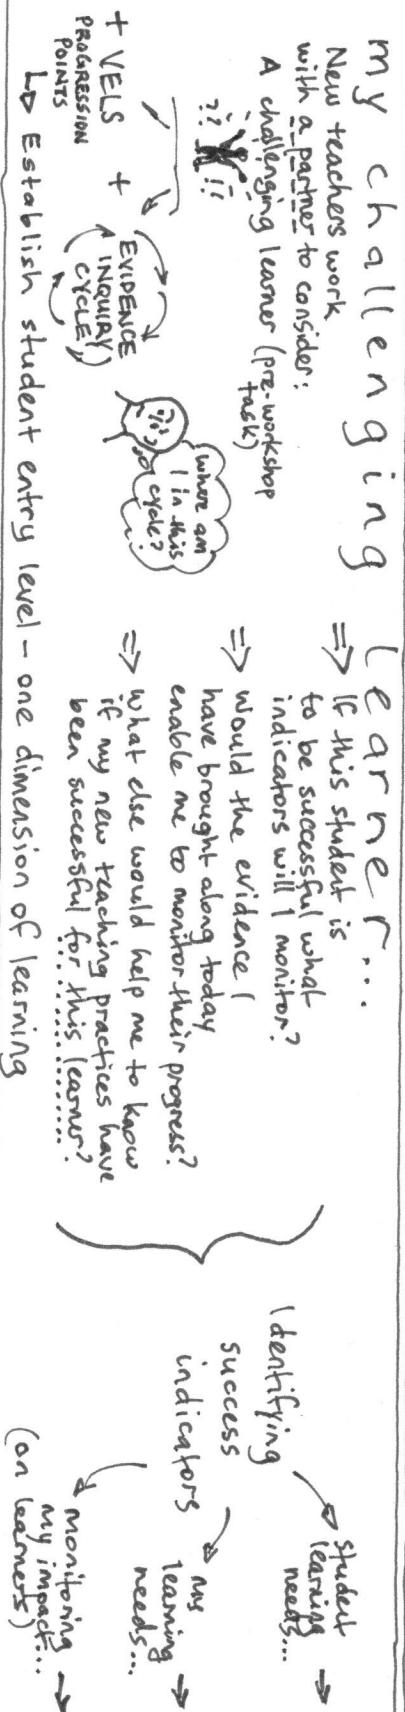 my challenging learner...
New teachers work
with a partner to consider:
A challenging learner (pre-workshop
task)
?? !!
+ VELS +
PROGRESSION
POINTS
EVIDENCE
INQUIRY
CYCLE
where am
I in this
cycle?
↳ Establish student entry level - one dimension of learning
⇒ If this student is
to be successful what
indicators will I monitor?
⇒ Would the evidence I
have brought along today
enable me to monitor their progress?
⇒ What else would help me to know
if my new teaching practices have
been successful for this learner?
Identifying
success
indicators
student
learning
needs... →
my
learning
needs... →
monitoring
my impact... →
(on learners)